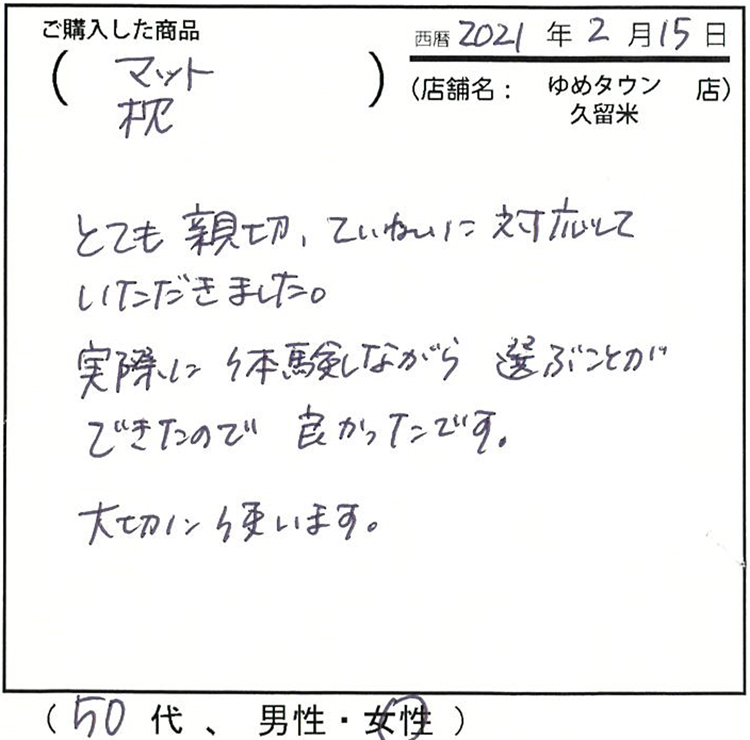 ご購入した商品
西暦 2021 年 2 月 15 日
(マット
枕)
(店舗名： ゆめタウン 店)
久留米
とても 親切、ていねいに 対応して
いただきました。
実際に 体験しながら 選ぶことが
できたので 良かったです。
大切に 使います。
(50 代 、 男性・女性)